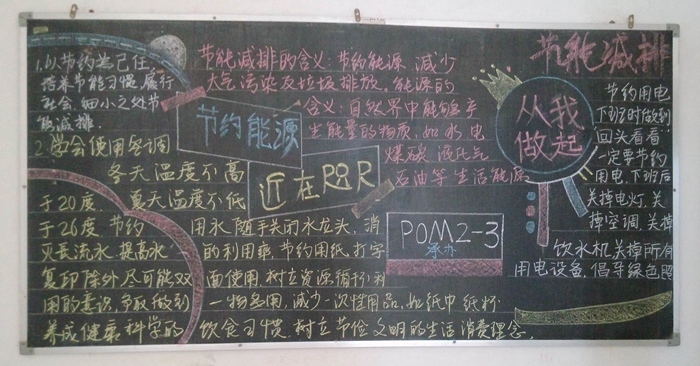 节能减排
1.以节约为己任,
培养节能习惯,履行
社会.细小之处节
能减排.
2.学会使用空调
冬天温度不高
于20度. 夏天温度不低
于26度 节约
用水,随手关闭水龙头,消
灭长流水.提高水
的利用率,节约用纸,打字
复印除外,尽可能双
面使用.树立资源循环利
用的意识,争取做到
一物多用,减少一次性用品,如纸巾 纸杯
养成健康科学的 饮食习惯.树立节俭文明的生活消费理念.
节能减排的含义:节约能源 减少
大气污染及垃圾排放。能源的
含义:自然界中能够产
生能量的物质,如水 电
煤碳 液化气
石油等生活能源
节约能源
近在
POM2-3
承办
从我
做起
节约用电
下班时做到
回头看看
一定要节约
用电,下班后
关掉电灯.关
掉空调.关掉
饮水机.关掉所有
用电设备,倡导绿色照